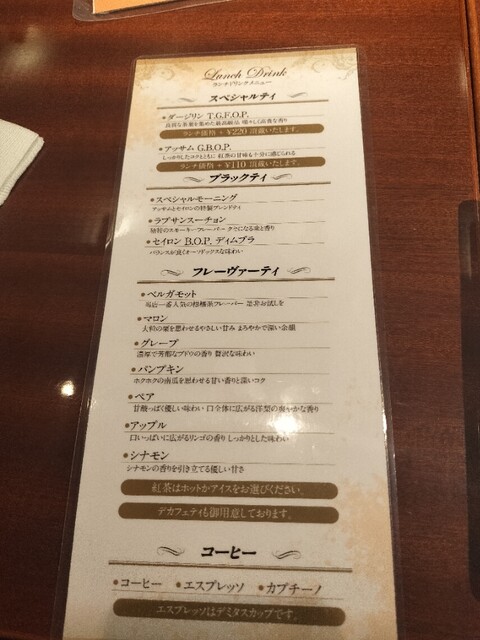 Lunch Drink
ランチドリンクメニュー
スペシャルティ
•ダージリン T.G.F.O.P.
良質な茶葉を集めた最高級品 瑞々しく高貴な香り
ランチ価格 + ¥220 頂戴いたします。
•アッサム G.B.O.P.
しっかりしたコクとともに 紅茶の甘味も十分に感じられる
ランチ価格 + ¥110 頂戴いたします。
ブラックティ
•スペシャルモーニング
アッサムとセイロンの特製ブレンドティ
•ラプサンスーチョン
独特のスモーキーフレーバー クセになる味と香り
•セイロン B.O.P. ディムブラ
バランスが良くオーソドックスな味わい
フレーヴァーティ
•ベルガモット
一番人気の柑橘系フレーバー 是非お試しを
•マロン
大粒の栗を思わせるやさしい甘み まろやかで深い余韻
•グレープ
濃厚で芳醇なブドウの香り 贅沢な味わい
•パンプキン
ホクホクの南瓜を思わせる甘い香りと深いコク
•ペア
甘酸っぱく優しい味わい 口全体に広がる洋梨の爽やかな香り
•アップル
口いっぱいに広がるリンゴの香り しっかりとした味わい
•シナモン
シナモンの香りを引き立てる優しい甘さ
紅茶はホットかアイスをお選びください。
デカフェティも御用意しております。
コーヒー
•コーヒー •エスプレッソ •カプチーノ
エスプレッソはデミタスカップです。